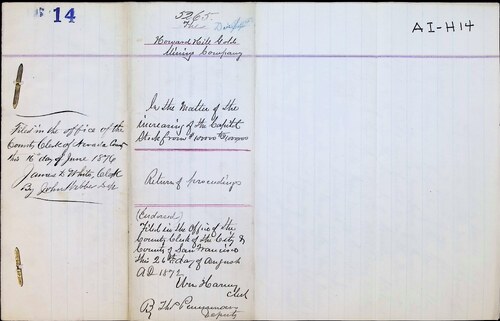 14
5265
Howard Hill Gold
Mining Company
AI-H14
In the Matter of the
increasing of the Capital
Stock from
Return of proceedings
(Endorsed)
Filed in the Office of the
County Clerk of the City &
County of San Francisco
this 26th day of August
A.D. 1872
Wm Harney
Clerk
By Thos
Deputy
Filed in the office of the
County Clerk of Nevada
this 16th day of June 1876
James D White, Clerk
By John Webber